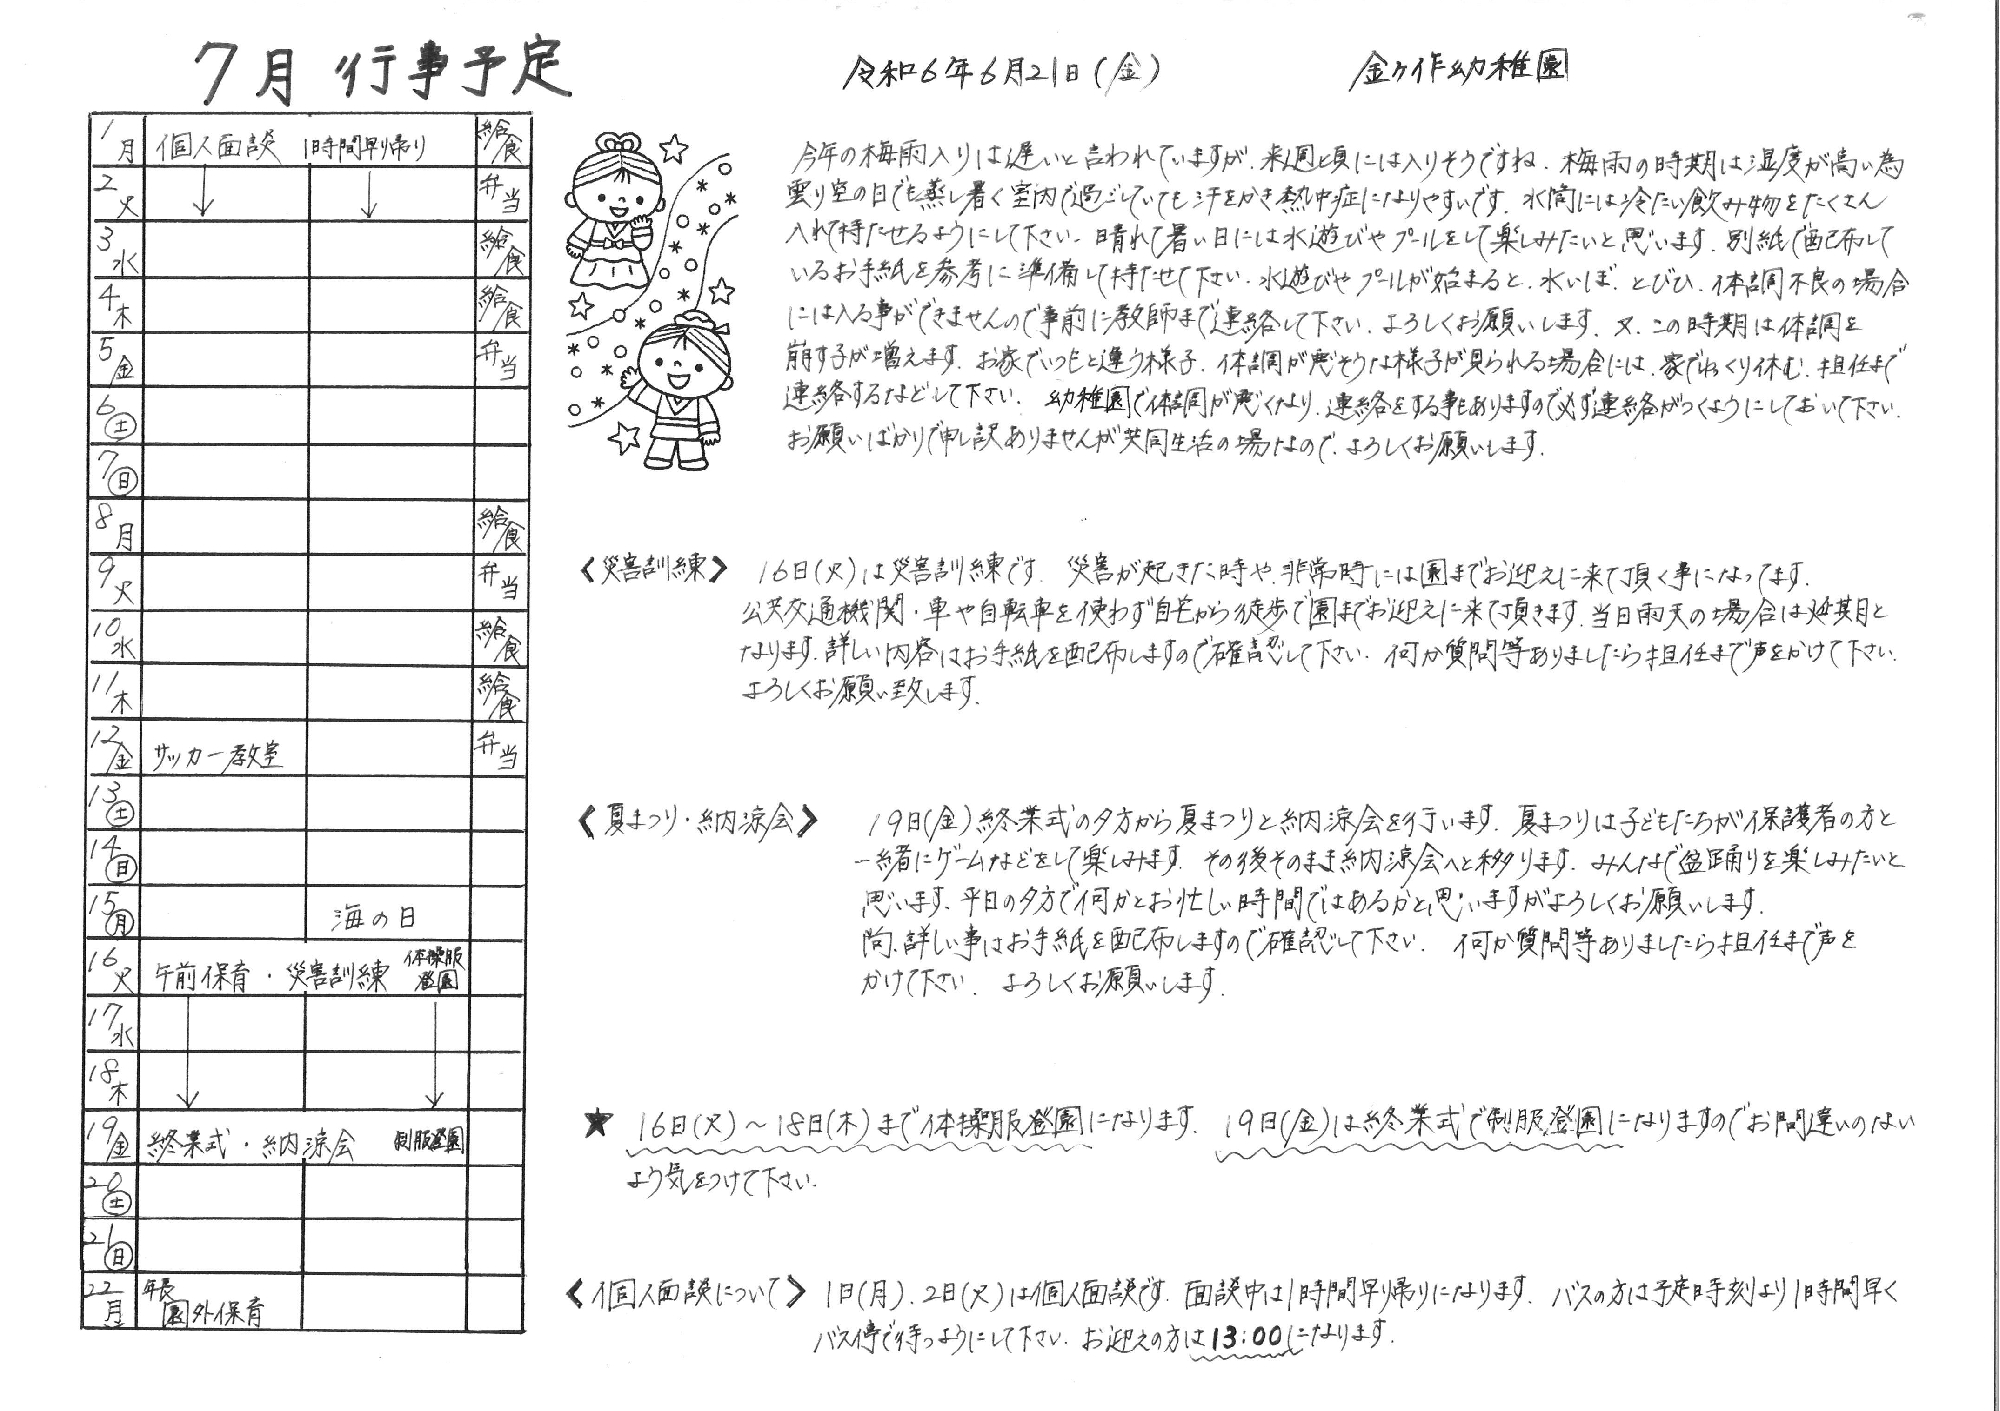 7月 行事予定
令和6年6月21日(金)
金ヶ作幼稚園
1月 個人面談 1時間早り帰り 給食
2火 ↓ ↓ 弁当
3水 給食
4木 給食
5金 弁当
6土
7日
8月 給食
9火 弁当
10水 給食
11木 給食
12金 サッカー教室 弁当
13土
14日
15月 海の日
16火 午前保育・災害訓練 体操服登園
17水
18木
19金 終業式・納涼会 制服登園
20土
21日
22月 年長園外保育
今年の梅雨入りは遅いと言われていますが、来週頃には入りそうですね。梅雨の時期は湿度が高い為
曇り空の日でも蒸し暑く室内で過ごしていても汗をかき熱中症になりやすいです。水筒には冷たい飲み物をたくさん
入れて持たせるようにして下さい。晴れて暑い日には水遊びやプールをして楽しみたいと思います。別紙で配布して
いるお手紙を参考に準備して持たせて下さい。水遊びやプールが始まると、水いぼ、とびひ、体調不良の場合
には入る事ができませんので事前に教師まで連絡して下さい。よろしくお願いします。又、この時期は体調を
崩す子が増えます。お家でいつもと違う様子、体調が悪そうな様子が見られる場合には、家でゆっくり休む、担任まで
連絡するなどして下さい。幼稚園で体調が悪くなり、連絡をする事もありますので必ず連絡がつくようにしておいて下さい。
お願いばかりで申し訳ありませんが共同生活の場なので、よろしくお願いします。
〈災害訓練〉 16日(火)は災害訓練です。災害が起きた時や、非常時には園までお迎えに来て頂く事になってます。
公共交通機関・車や自転車を使わず自宅から徒歩で園までお迎えに来て頂きます。当日雨天の場合は延期と
なります。詳しい内容はお手紙を配布しますので確認して下さい。何か質問等ありましたら担任まで声をかけて下さい。
よろしくお願い致します。
〈夏まつり・納涼会〉 19日(金)終業式の夕方から夏まつりと納涼会を行います。夏まつりは子どもたちが保護者の方と
一緒にゲームなどをして楽しみます。その後そのまま納涼会へと移ります。みんなで盆踊りを楽しみたいと
思います。平日の夕方で何かとお忙しい時間ではあるかと思いますがよろしくお願いします。
尚、詳しい事はお手紙を配布しますので確認して下さい。何か質問等ありましたら担任まで声を
かけて下さい。よろしくお願いします。
★ 16日(火)～18日(木)まで体操服登園になります。19日(金)は終業式で制服登園になりますのでお間違いのない
よう気をつけて下さい。
〈個人面談について〉 1日(月)、2日(火)は個人面談です。面談中は1時間早り帰りになります。バスの方は予定時刻より1時間早く
バス停で待つようにして下さい。お迎えの方は13:00になります。